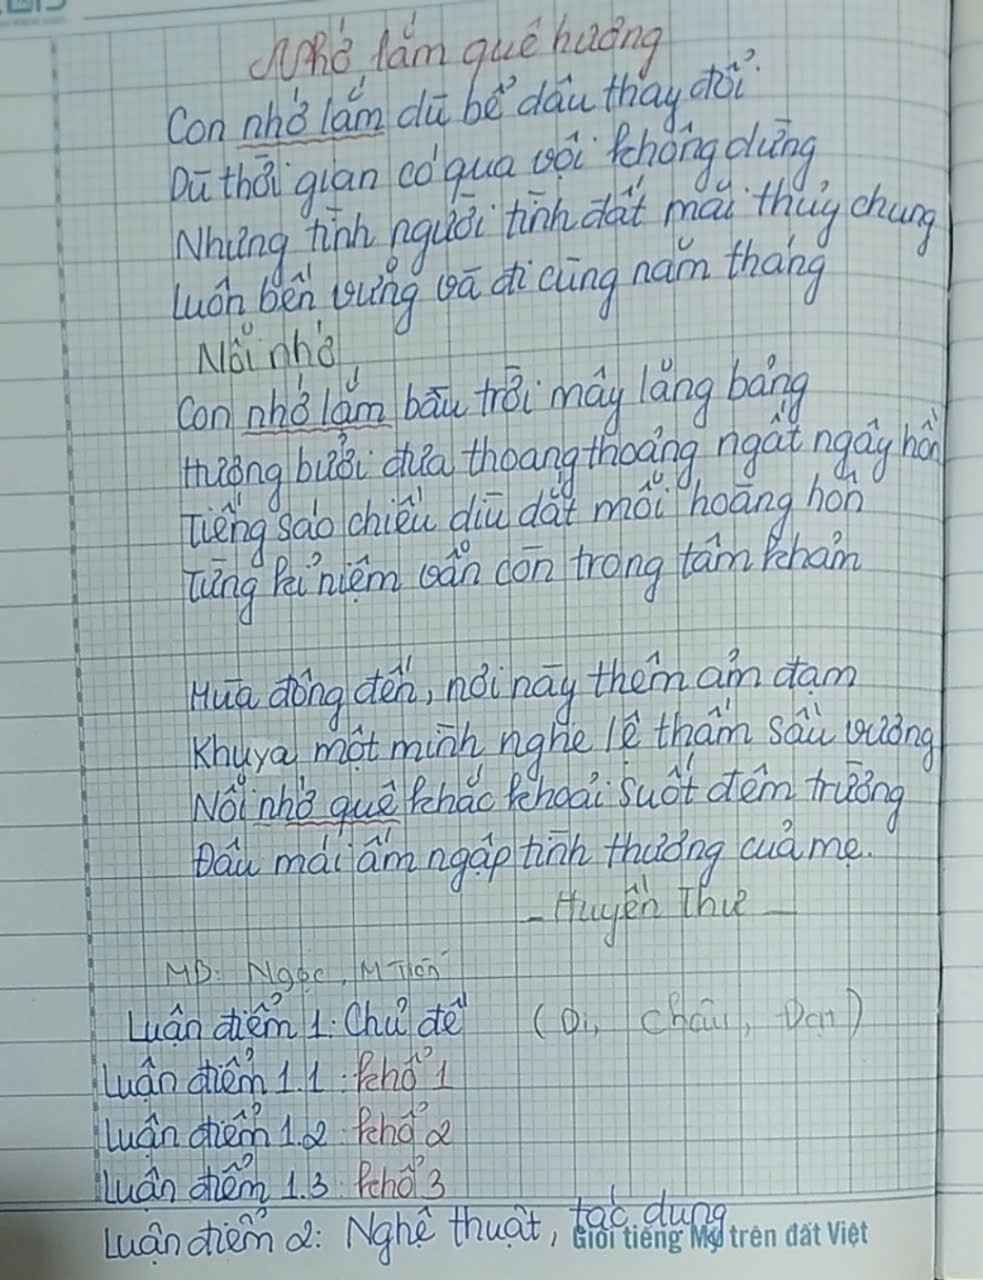 Nhớ lắm quê hương
Con nhớ lắm dù bể dâu thay đổi
Dù thời gian có qua vội không dừng
Nhưng tình người tình đất mãi thủy chung
Luôn bền vững và đi cùng năm tháng
Nỗi nhớ
Con nhớ lắm bầu trời mây lãng bảng
Hương bưởi đưa thoang thoảng ngất ngây hồn
Tiếng sáo chiều dìu dặt mỗi hoàng hôn
Từng kỉ niệm vẫn còn trong tâm khảm
Mùa đông đến, nơi này thêm ảm đạm
Khuya một mình nghe lệ thấm sầu vương
Nỗi nhớ quê khắc khoải suốt đêm trường
Đâu mái ấm ngập tình thương của mẹ.
- Huyền Thư -
MB: Ngọc, M Tiến
Luận điểm 1: Chủ đề (Di, Châu, Đan)
Luận điểm 1.1: khổ 1
Luận điểm 1.2: khổ 2
Luận điểm 1.3: khổ 3
Luận điểm 2: Nghệ thuật, tác dụng
Giỏi tiếng Mỹ trên đất Việt